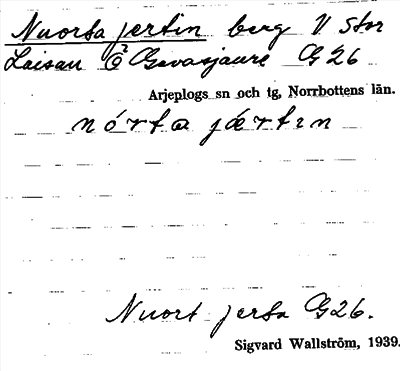 Nuorta jertin berg V Stor
Laisan Ö Gavasjaure G 26
Arjeplogs sn och tg, Norrbottens län.
nórta jærtin
Nuort jerta G26.
Sigvard Wallström, 1939.